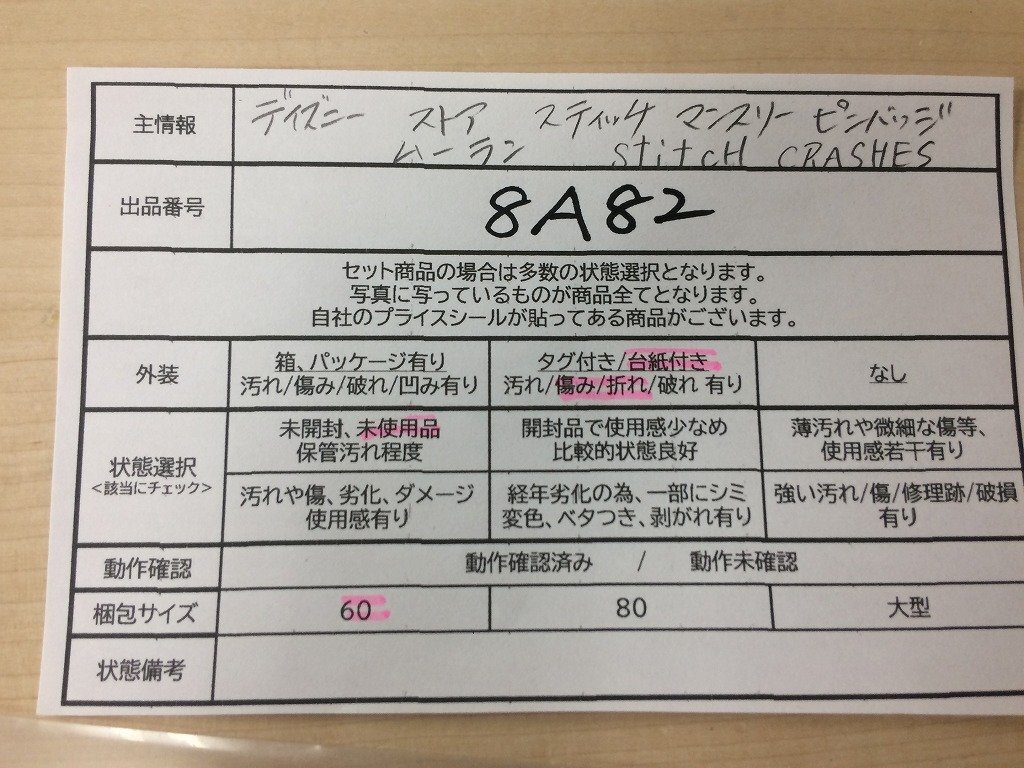 主情報
ディズニー ストア スティッチ マンスリー ピンバッジ
ムーラン stitcH CRASHES
出品番号
8A82
セット商品の場合は多数の状態選択となります。
写真に写っているものが商品全てとなります。
自社のプライスシールが貼ってある商品がございます。
外装
箱、パッケージ有り
汚れ/傷み/破れ/凹み有り
タグ付き/台紙付き
汚れ/傷み/折れ/破れ 有り
なし
状態選択
<該当にチェック>
未開封、未使用品
保管汚れ程度
開封品で使用感少なめ
比較的状態良好
薄汚れや微細な傷等、
使用感若干有り
汚れや傷、劣化、ダメージ
使用感有り
経年劣化の為、一部にシミ
変色、ベタつき、剥がれ有り
強い汚れ/傷/修理跡/破損
有り
動作確認
動作確認済み / 動作未確認
梱包サイズ
60
80
大型
状態備考